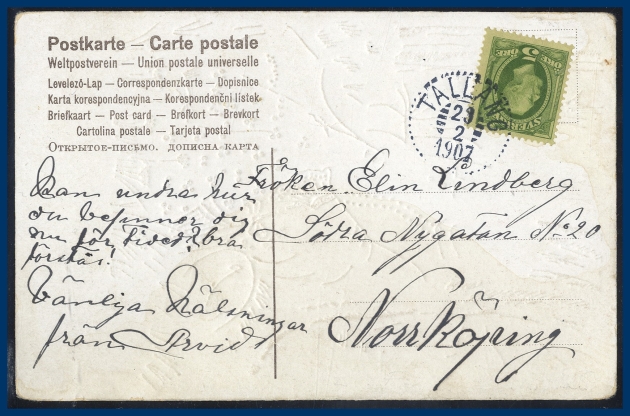 Postkarte — Carte postale
Weltpostverein — Union postale universelle
Levelező-Lap — Correspondenzkarte — Dopisnice
Karta korespondencyjna — Korespondenční lístek
Briefkaart — Post card — Brefkort — Brevkort
Cartolina postale — Tarjeta postal
Открытое-письмо. дописна карта
TALLÅNG
23
2
1907
5
ÖRE
SVERIGE
Kan undra hur
du befinner dig
nu för tiden? bra
förstås!
Vänliga Hälsningar
från Arvid
Fröken Elin Lindberg
Södra Nygatan No 20
Norrköping